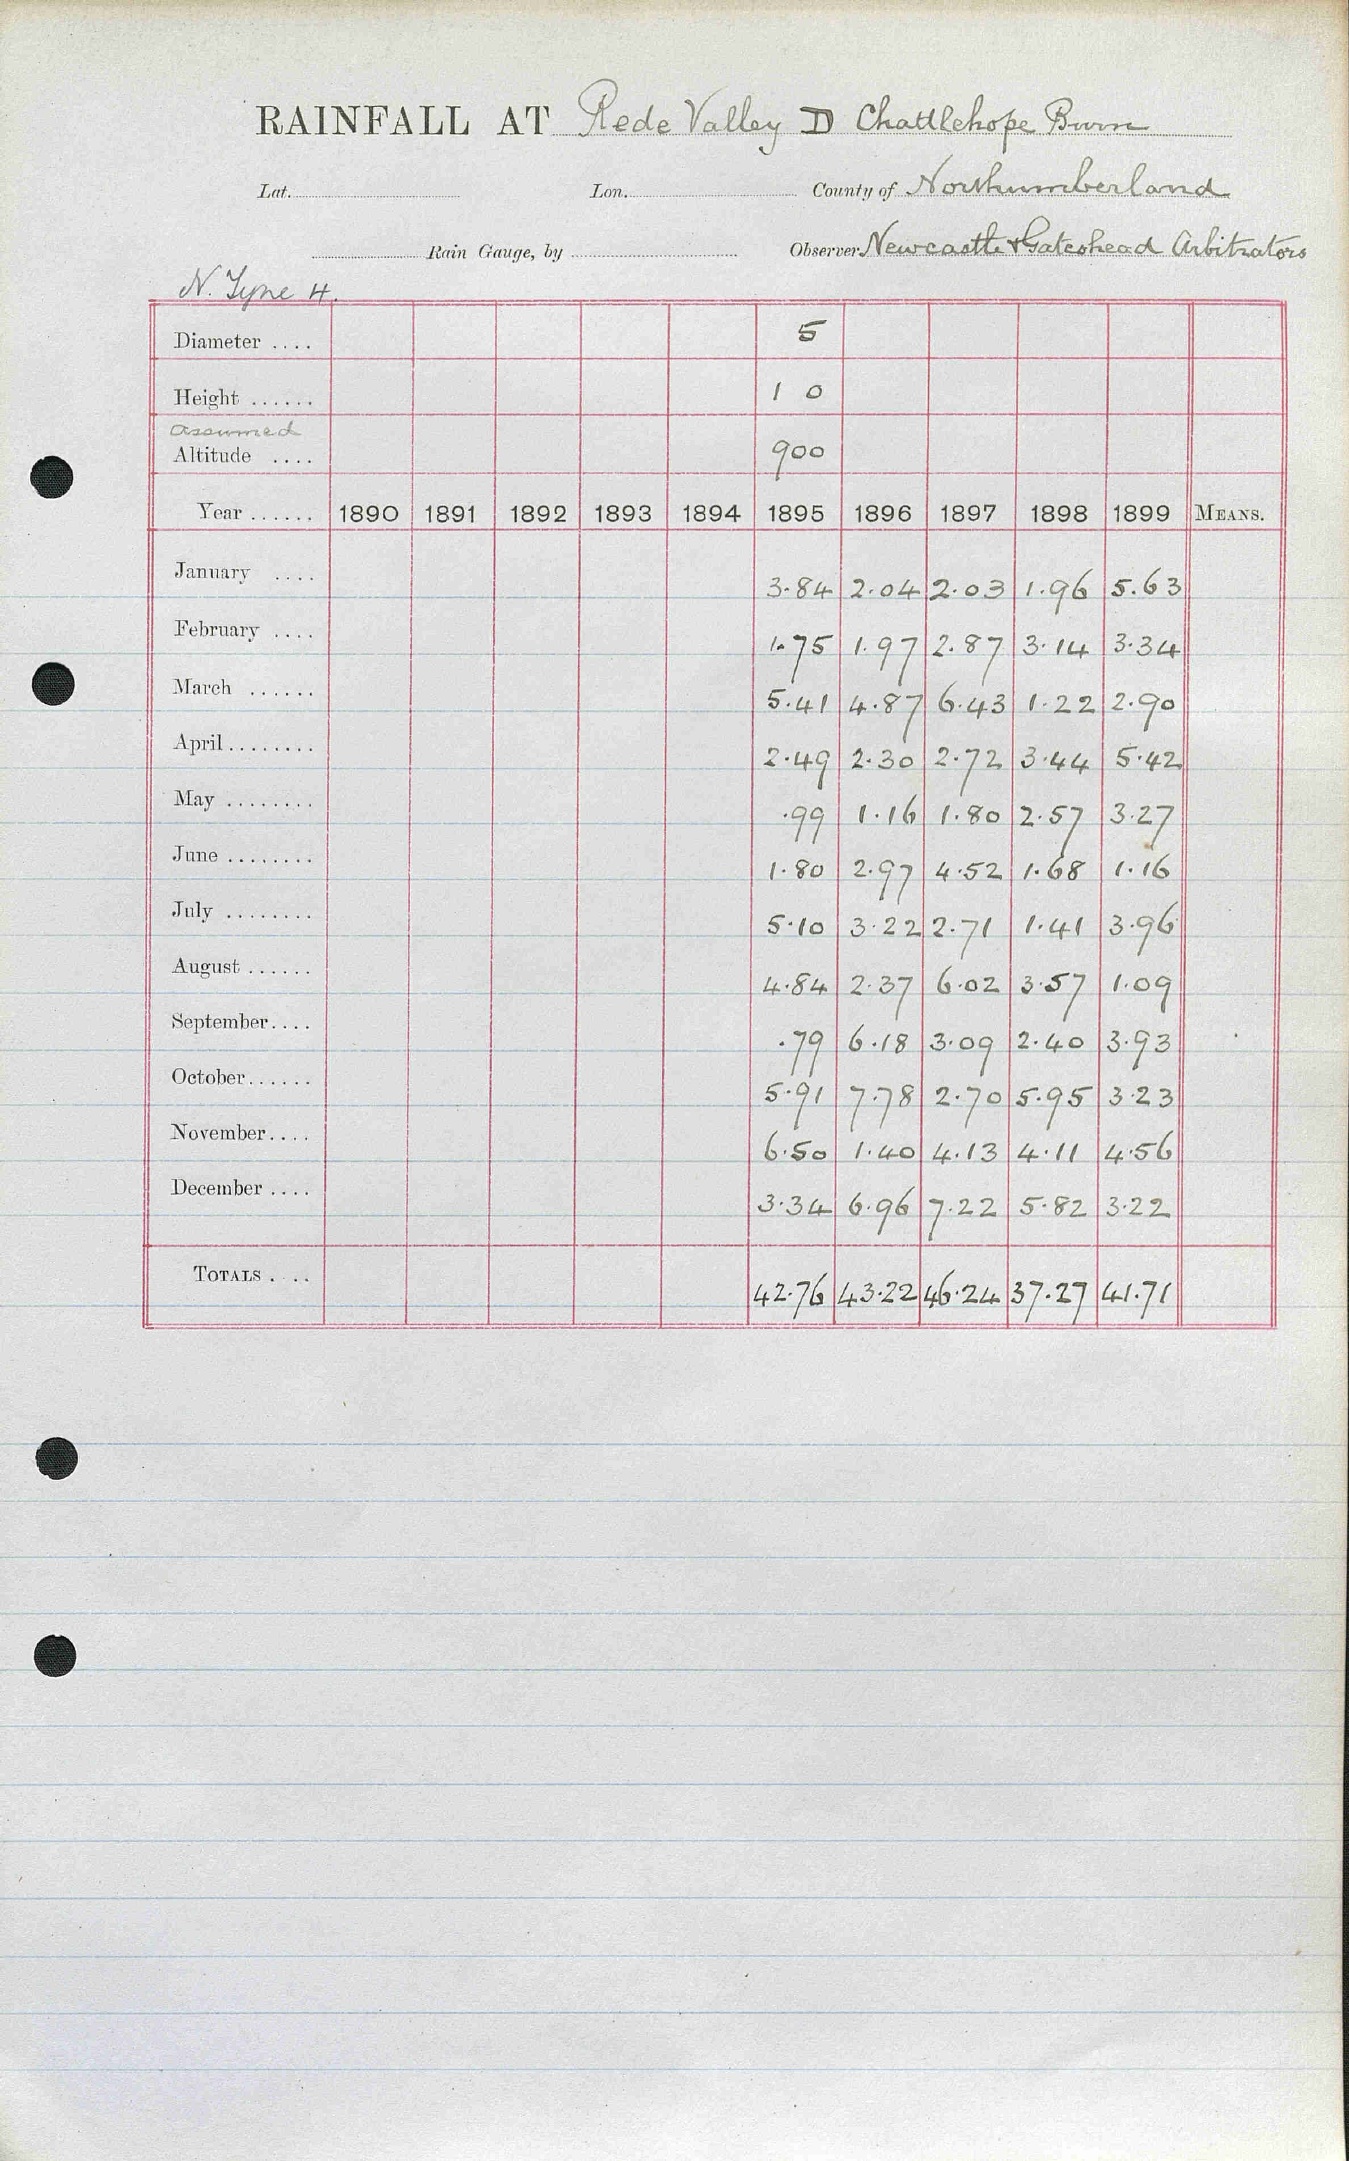 RAINFALL AT Rede Valley D Chattlehope Burn
Lat. Lon. County of Northumberland
Rain Gauge, by Observer Newcastle & Gateshead Arbitrators
N. Tyne 4.
Diameter .... 5
Height ...... 1 0
assumed
Altitude .... 900
Year ...... 1890 1891 1892 1893 1894 1895 1896 1897 1898 1899 MEANS.
January .... 3.84 2.04 2.03 1.96 5.63
February .... 1.75 1.97 2.87 3.14 3.34
March ...... 5.41 4.87 6.43 1.22 2.90
April........ 2.49 2.30 2.72 3.44 5.42
May ........ .99 1.16 1.80 2.57 3.27
June ........ 1.80 2.97 4.52 1.68 1.16
July ........ 5.10 3.22 2.71 1.41 3.96
August ...... 4.84 2.37 6.02 3.57 1.09
September.... .79 6.18 3.09 2.40 3.93
October...... 5.91 7.78 2.70 5.95 3.23
November.... 6.50 1.40 4.13 4.11 4.56
December .... 3.34 6.96 7.22 5.82 3.22
TOTALS .... 42.76 43.22 46.24 37.27 41.71